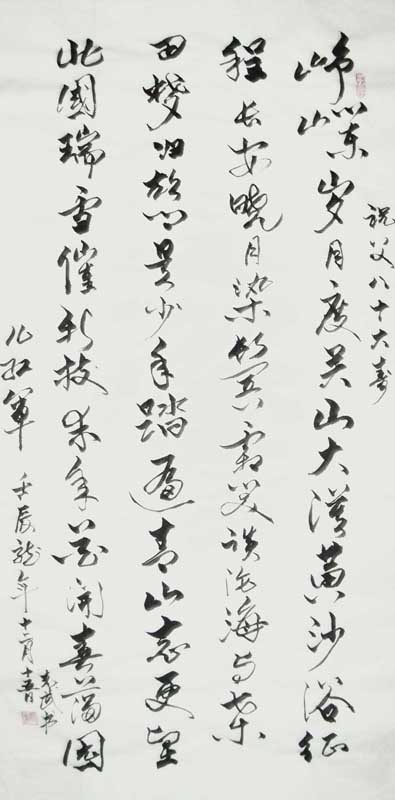 祝父八十大寿
峥嵘岁月度关山大漠黄沙浴征
程长安晓月染鬓霜笑谈沧海与桑
田梦归是少年踏遍青山志更
北国瑞雪催新枝来年花开喜满园
儿红军
壬辰龙年十二月十五日
书